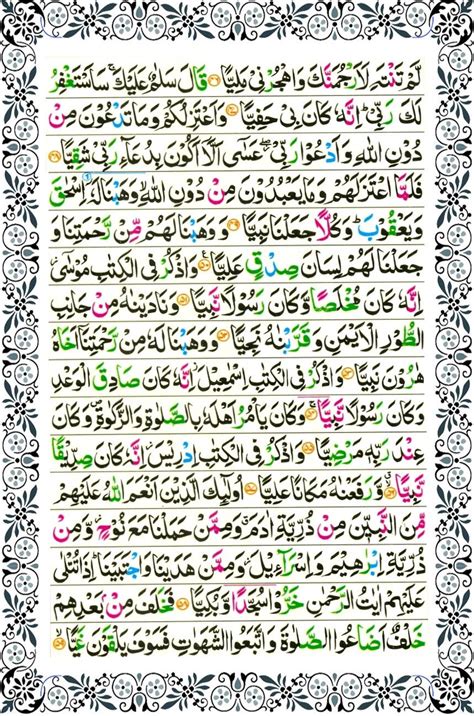 لَّمْ تَنْتَهِ لَاَرْجُمَنَّكَ وَاهْجُرْنِيْ مَلِيًّا ﴿۴۶﴾ قَالَ سَلٰمٌ عَلَيْكَ ۚ سَاَسْتَغْفِرُ
لَكَ رَبِّيْ ؕ اِنَّهٗ كَانَ بِيْ حَفِيًّا ﴿۴۷﴾ وَاَعْتَزِلُكُمْ وَمَا تَدْعُوْنَ مِنْ
دُوْنِ اللّٰهِ وَاَدْعُوْا رَبِّيْ ۖ عَسٰۤى اَلَّاۤ اَكُوْنَ بِدُعَآءِ رَبِّيْ شَقِيًّا ﴿۴۸﴾
فَلَمَّا اعْتَزَلَهُمْ وَمَا يَعْبُدُوْنَ مِنْ دُوْنِ اللّٰهِ ۙ وَهَبْنَا لَهٗۤ اِسْحٰقَ
وَيَعْقُوْبَ ؕ وَكُلًّا جَعَلْنَا نَبِيًّا ﴿۴۹﴾ وَوَهَبْنَا لَهُمْ مِّنْ رَّحْمَتِنَا وَ
جَعَلْنَا لَهُمْ لِسَانَ صِدْقٍ عَلِيًّا ﴿۵۰﴾ وَاذْكُرْ فِي الْكِتٰبِ مُوْسٰۤى ؗ
اِنَّهٗ كَانَ مُخْلَصًا وَّكَانَ رَسُوْلًا نَّبِيًّا ﴿۵۱﴾ وَنَادَيْنٰهُ مِنْ جَانِبِ
الطُّوْرِ الْاَيْمَنِ وَقَرَّبْنٰهُ نَجِيًّا ﴿۵۲﴾ وَوَهَبْنَا لَهٗ مِنْ رَّحْمَتِنَاۤ اَخَاهُ
هٰرُوْنَ نَبِيًّا ﴿۵۳﴾ وَاذْكُرْ فِي الْكِتٰبِ اِسْمٰعِيْلَ ؗ اِنَّهٗ كَانَ صَادِقَ الْوَعْدِ
وَكَانَ رَسُوْلًا نَّبِيًّا ﴿۵۴﴾ وَكَانَ يَاْمُرُ اَهْلَهٗ بِالصَّلٰوةِ وَالزَّكٰوةِ ۪ وَكَانَ
عِنْدَ رَبِّهٖ مَرْضِيًّا ﴿۵۵﴾ وَاذْكُرْ فِي الْكِتٰبِ اِدْرِيْسَ ؗ اِنَّهٗ كَانَ صِدِّيْقًا
نَّبِيًّا ﴿۵۶﴾ وَّرَفَعْنٰهُ مَكَانًا عَلِيًّا ﴿۵۷﴾ اُولٰٓئِكَ الَّذِيْنَ اَنْعَمَ اللّٰهُ عَلَيْهِمْ
مِّنَ النَّبِيّٖنَ مِنْ ذُرِّيَّةِ اٰدَمَ ۗ وَمِمَّنْ حَمَلْنَا مَعَ نُوْحٍ ؗ وَّمِنْ
ذُرِّيَّةِ اِبْرٰهِيْمَ وَاِسْرَآءِيْلَ ؗ وَمِمَّنْ هَدَيْنَا وَاجْتَبَيْنَا ؕ اِذَا تُتْلٰى
عَلَيْهِمْ اٰيٰتُ الرَّحْمٰنِ خَرُّوْا سُجَّدًا وَّبُكِيًّا ﴿۵۸﴾ فَخَلَفَ مِنْۢ بَعْدِهِمْ
خَلْفٌ اَضَاعُوا الصَّلٰوةَ وَاتَّبَعُوا الشَّهَوٰتِ فَسَوْفَ يَلْقَوْنَ غَيًّا ﴿۵۹﴾